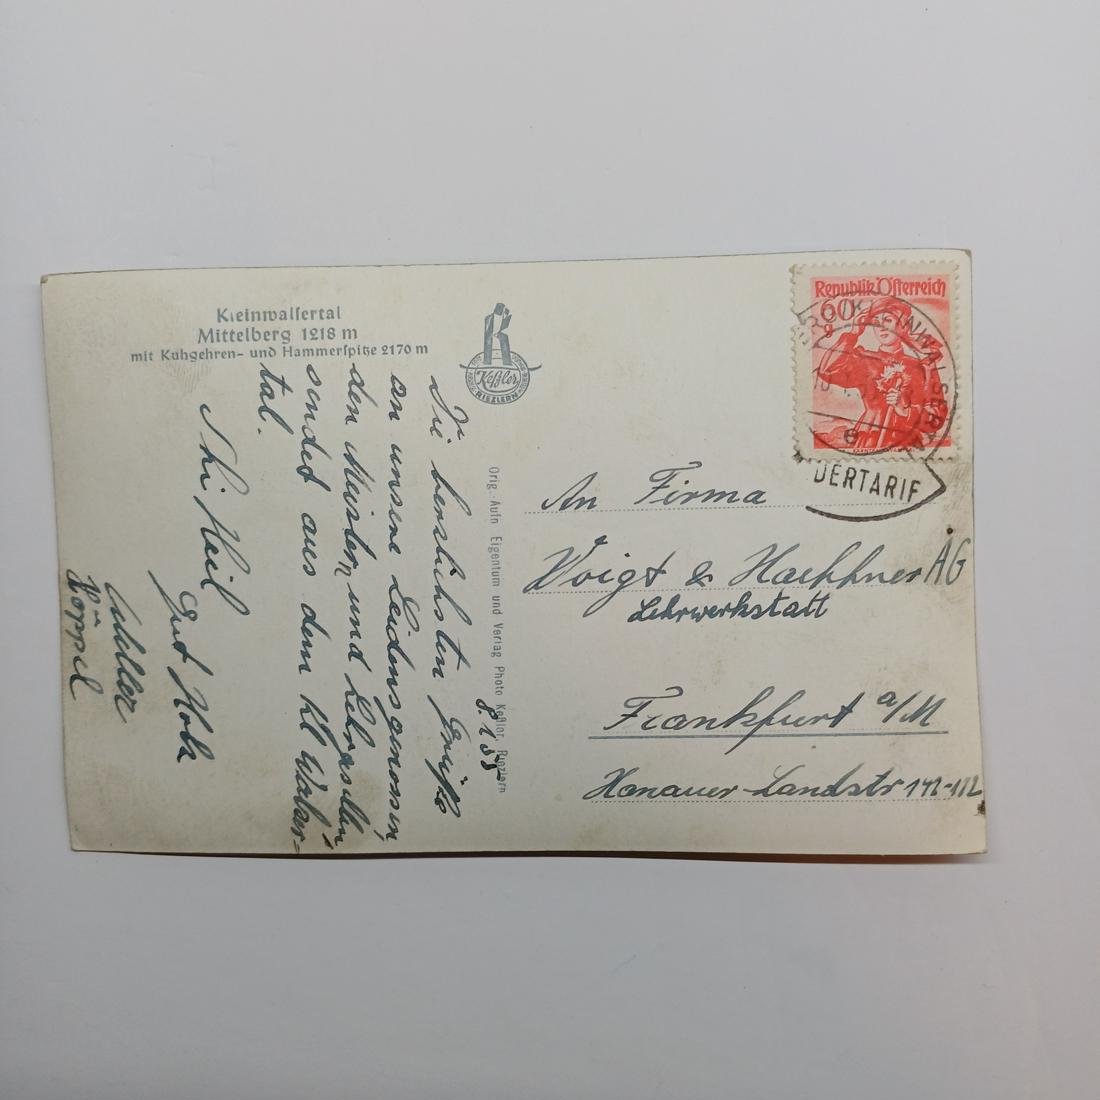 Kleinwalsertal
Mittelberg 1218 m
mit Kuhgehren- und Hammerspitze 2170 m
Keßler
RIEZLERN
Die herzlichsten Grüße
an unsere Leidensgenossen,
den Meistern und
sendet aus dem kl Walser=
tal.
Shi Heil
Gut Holz
8.1.55
Orig.-Aufn Eigentum und Verlag Photo Keßler, Riezlern
Republik Österreich
60
g
KLEINWALSERTAL
e
DERTARIF
An Firma
Voigt & Haeffner AG
Lehrwerkstatt
Frankfurt a/M
Hanauer-Landstr 142-172